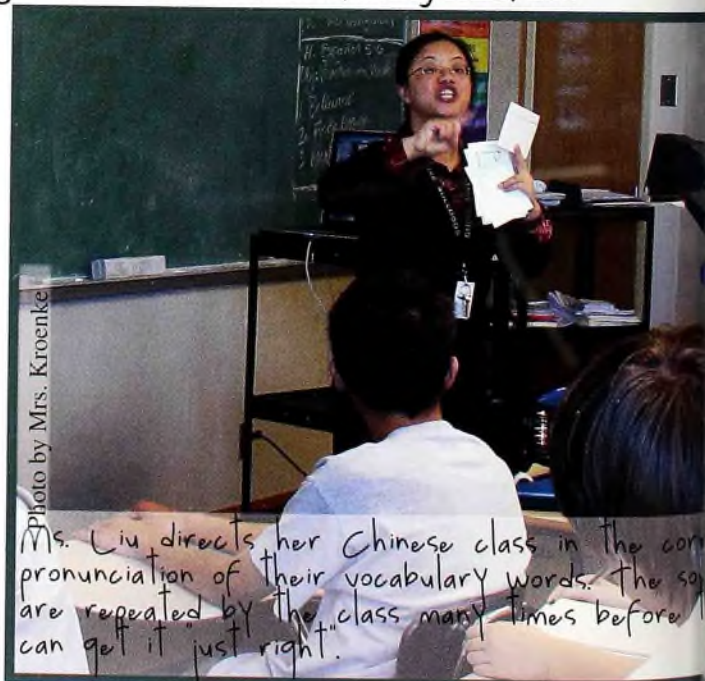 H. Español 5-6
Photo by Mrs. Kroenke
Ms. Liu directs her Chinese class in the
pronunciation of their vocabulary words. The
are repeated by the class many times before
can get it "just right".